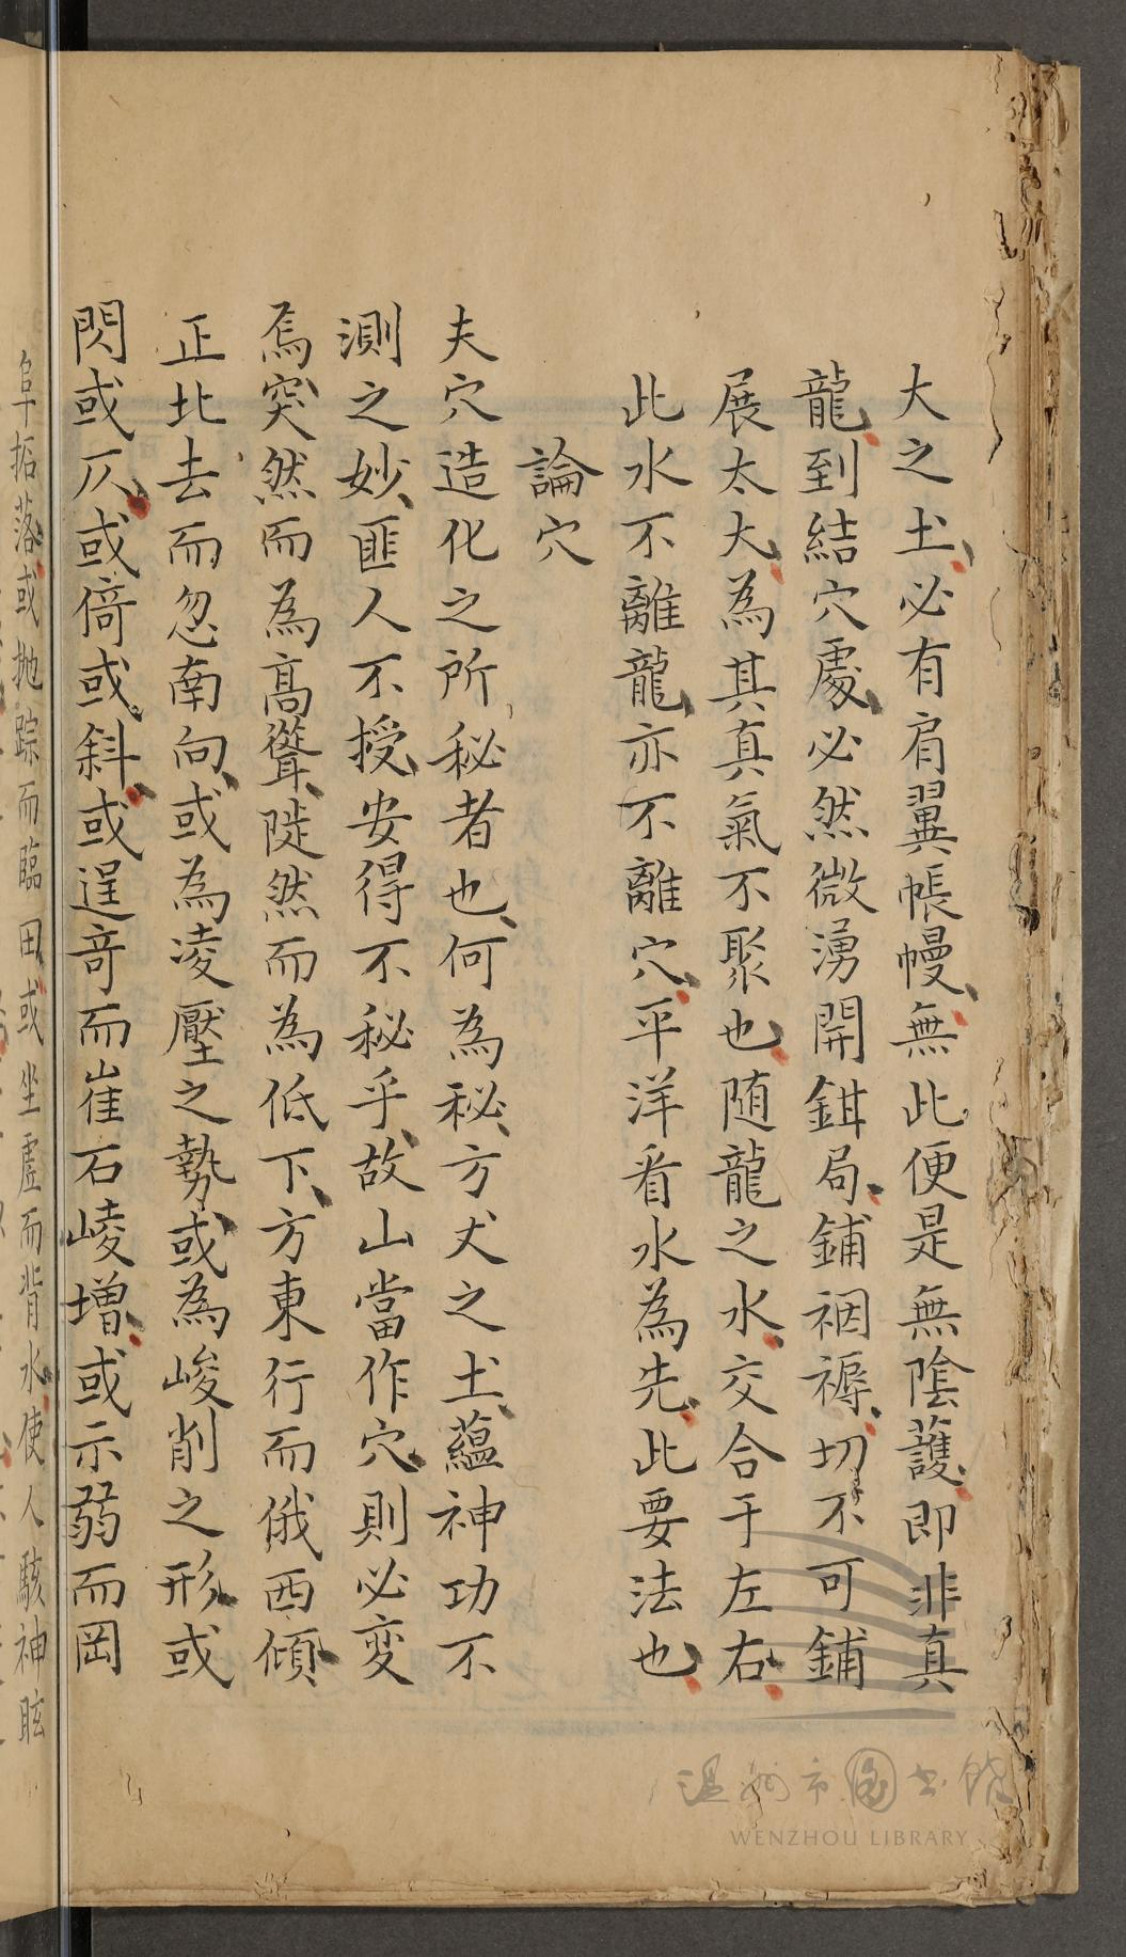 大之土必有肩翼帳幔無此便是無陰護即非真
龍到結穴處必然微微湧開鉗局鋪裀褥切不可鋪
展太大為其真氣不聚也随龍之水交合于左右
此水不離龍亦不離穴平洋看水為先此要法也
論穴
夫穴造化之所秘者也何為秘方丈之土蘊神功不
測之妙匪人不授安得不秘乎故山當作穴則必变
焉突然而為高聳陡然而為低下方東行而俄西傾
正北去而忽南向或為凌壓之勢或為峻削之形或
閃或仄或倚或斜或逞竒而崔石崚增或示弱而岡
阜拓落或抛踪而臨田或坐虚而背水使人駭神眩
温州市图书馆
WENZHOU LIBRARY